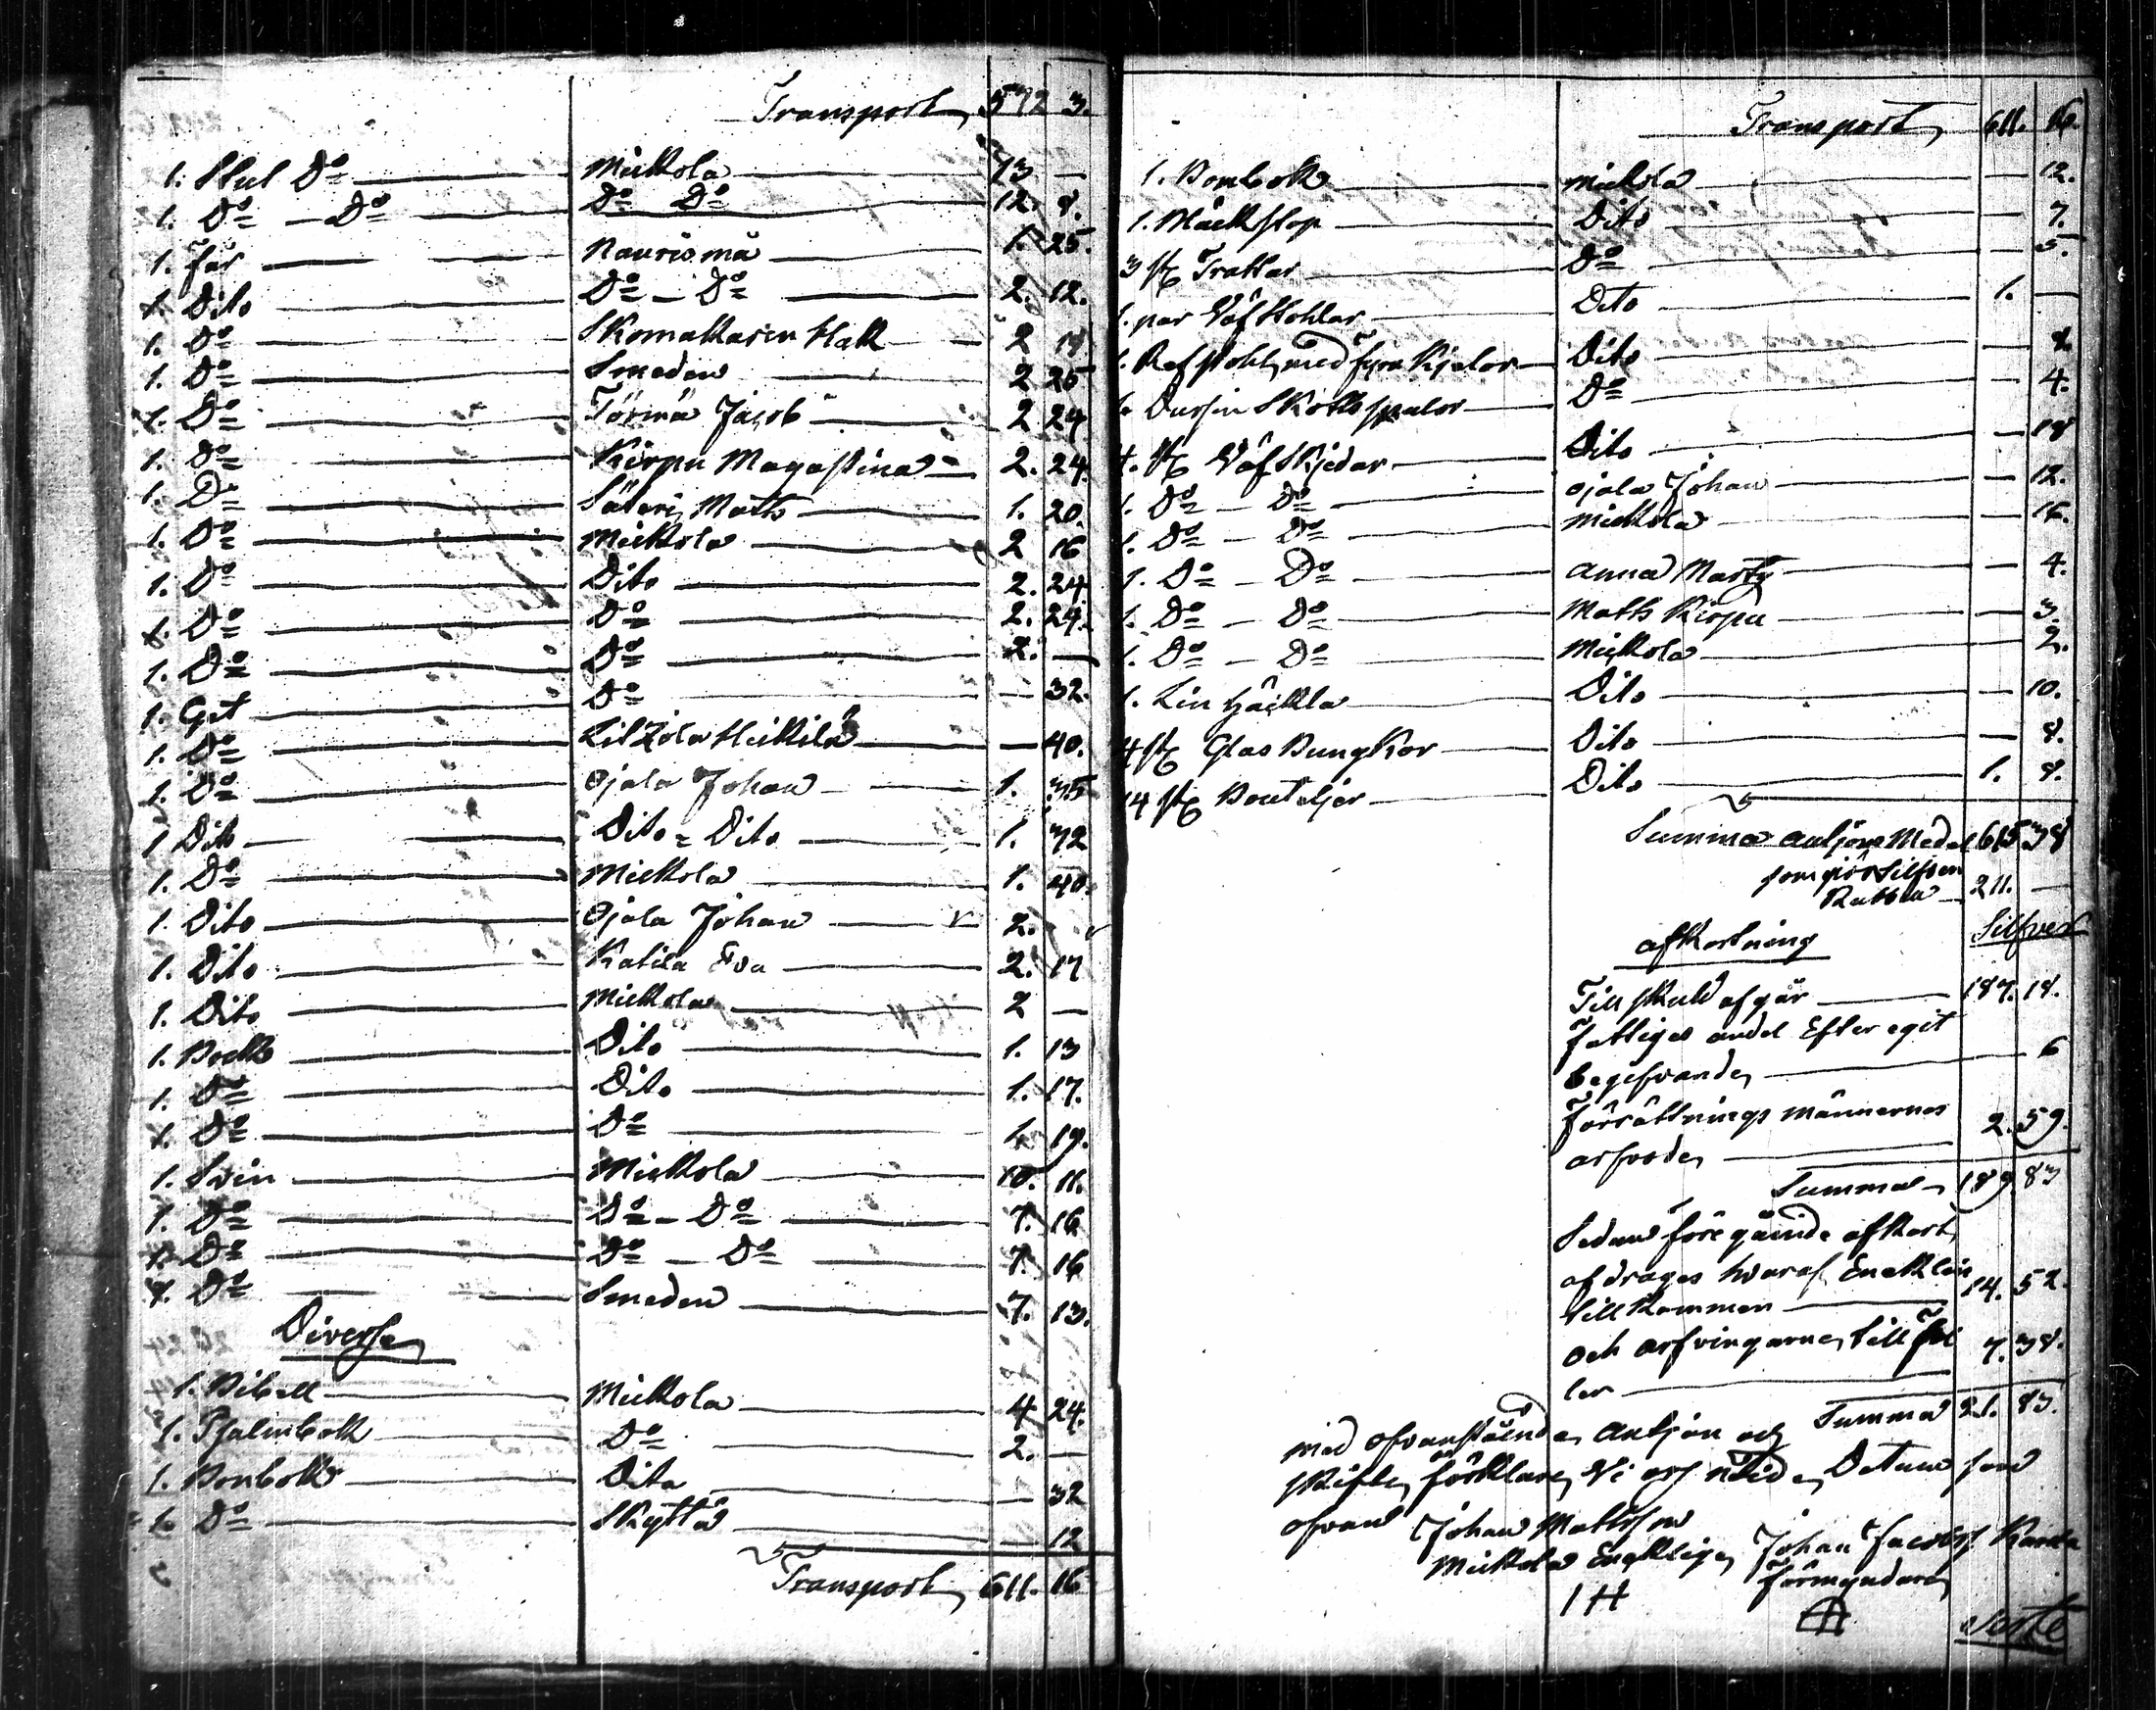 Transport 572 3.
1. Stut Do Mickola 13. —
1. Do — Do Do Do 12. 8.
1. Får Naurismä 1. 25.
1. Dito Do — Do 2. 12.
1. Do Skomakaren 2 19
1. Do Smeden 2 25
1. Do Törmä Jacob 2 24
1. Do Kirpu Maga Stina 2. 24.
1. Do Säteri Matts 1. 20.
1. Do Mickola 2 16
1. Do Dito 2. 24
1. Do Do 2. 24.
1. Do Do 2. —
1. Get Do — 32.
1. Do Heikkilä — 40.
1. Do Ojala Johan 1. 35
1 Dito Dito = Dito 1. 32
1. Do Mickola 1. 40.
1. Dito Ojala Johan 2.
1. Dito Katila Eva 2. 17
1. Dito Mickola 2 —
1. Bock Dito 1. 13
1. Do Dito 1. 17.
1. Do Do 1. 19.
1. Svin Mickola 10. 11.
1. Do Do — Do 7. 16
1. Do Do — Do 7. 16
1. Do Smeden 7. 13.
Diverse
1. Bibell Mickola 4 24.
1. Psalmbok Do 2. —
1. Bönbok Dito — 32
1. Do Skyttä — 12
Transport 611. 16
Transport 611. 16.
1. Bönbok Mickola — 12.
1. Dito — 7.
3 st Trattar Do — 5.
1. par Väf Dito 1. —
1. med fyra Dito — 8.
1. Dussin Skottspolar Do — 4.
4. st Väfskjedar Dito — 18
1. Do — Do Ojala Johan — 12.
1. Do — Do Mickola — 16.
1. Do — Do Anna — 4.
1. Do — Do Matts Kirpu — 3.
1. Do — Do Mickola — 2.
1. Lin Häckla Dito — 10.
4 st Glas Dito — 8.
14 st Bouteljer Dito 1. 8.
Summa Auktjons Medel 615 38
som giör Silfver
Rubla 211. —
Afkortning Silfver
Till skuld afgår 187. 18.
Fattiges andel Efter egit
begifvande 6
Förrättnings männernes
arfvode 2. 59.
Summa 189 83
Sedan föregående afkort,
afdrages hvaraf Encklin
tillkommer 14. 52.
och arfvingarne till fal
ler 7. 38.
Summa 21. 83.
med ofvanstående Auktjon och
skifte förklare Vi oss nöjde Datum som
ofvan Johan Mattsson
Mickola Encklige Johan Jacobss
förmyndare
IH
Verte